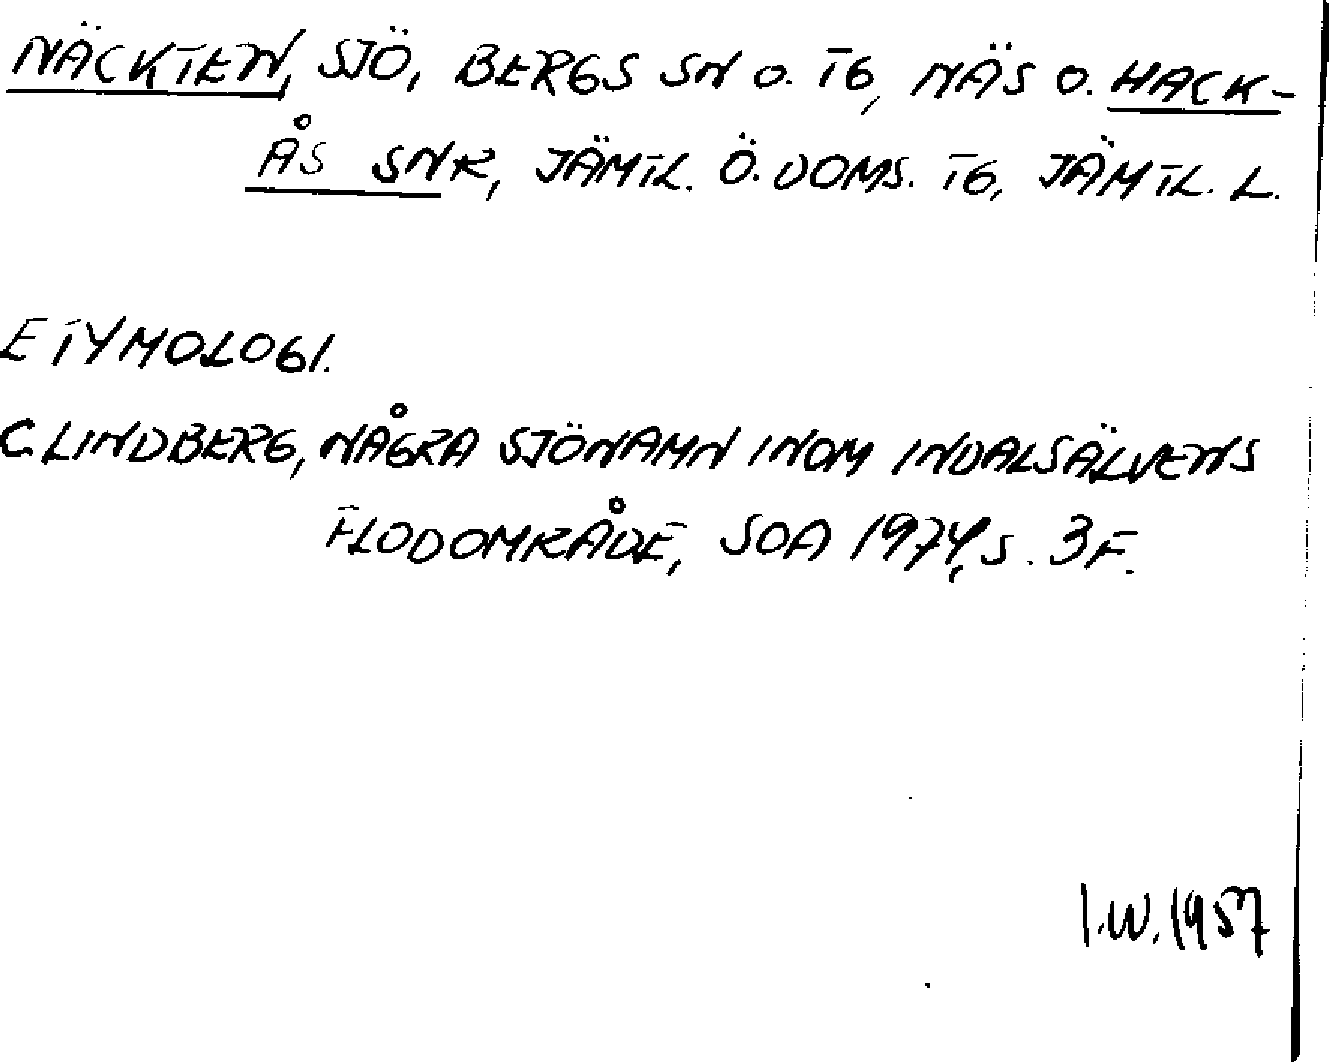 NÄCKTEN, SJÖ, BERGS SN O. TG, NÄS O. HACK-
ÅS SNR, JÄMTL. Ö. DOMS. TG, JÄMTL. L.
ETYMOLOGI.
C LINDBERG, NÅGRA SJÖNAMN INOM INDALSÄLVENS
FLODOMRÅDE, SOA 1974, S. 3 F.
I.W. 1957